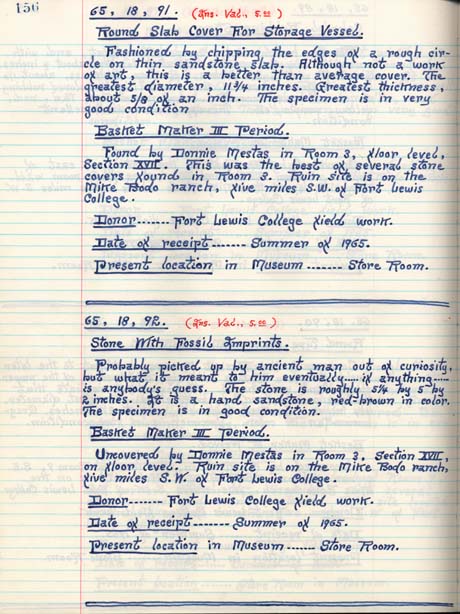 156
65, 18, 91. (Ins. Val., 5.00)
Round Slab Cover For Storage Vessel.
Fashioned by chipping the edges of a rough cir-
cle on thin sandstone slab. Although not a work
of art, this is a better than average cover. The
greatest diameter, 11 3/4 inches. Greatest thickness,
about 5/8 of an inch. The specimen is in very
good condition
Basket Maker III Period.
Found by Donnie Mestas in Room 3, floor level,
Section XVII. This was the best of several stone
covers found in Room 3. Ruin site is on the
Mike Bodo ranch, five miles S.W. of Fort Lewis
College.
Donor------- Fort Lewis College field work.
Date of receipt------- Summer of 1965.
Present location in Museum ------- Store Room.
65, 18, 92. (Ins. Val., 5.00)
Stone With Fossil Imprints.
Probably picked up by ancient man out of curiosity,
but what it meant to him eventually..... if anything.....
is anybody's guess. The stone is roughly 5 1/4 by 5 by
2 inches. It is a hard sandstone, red-brown in color.
The specimen is in good condition.
Basket Maker III Period.
Uncovered by Donnie Mestas in Room 3, Section XVII,
on floor level. Ruin site is on the Mike Bodo ranch,
five miles S.W. of Fort Lewis College.
Donor------- Fort Lewis College field work.
Date of receipt------- Summer of 1965.
Present location in Museum ------ Store Room.